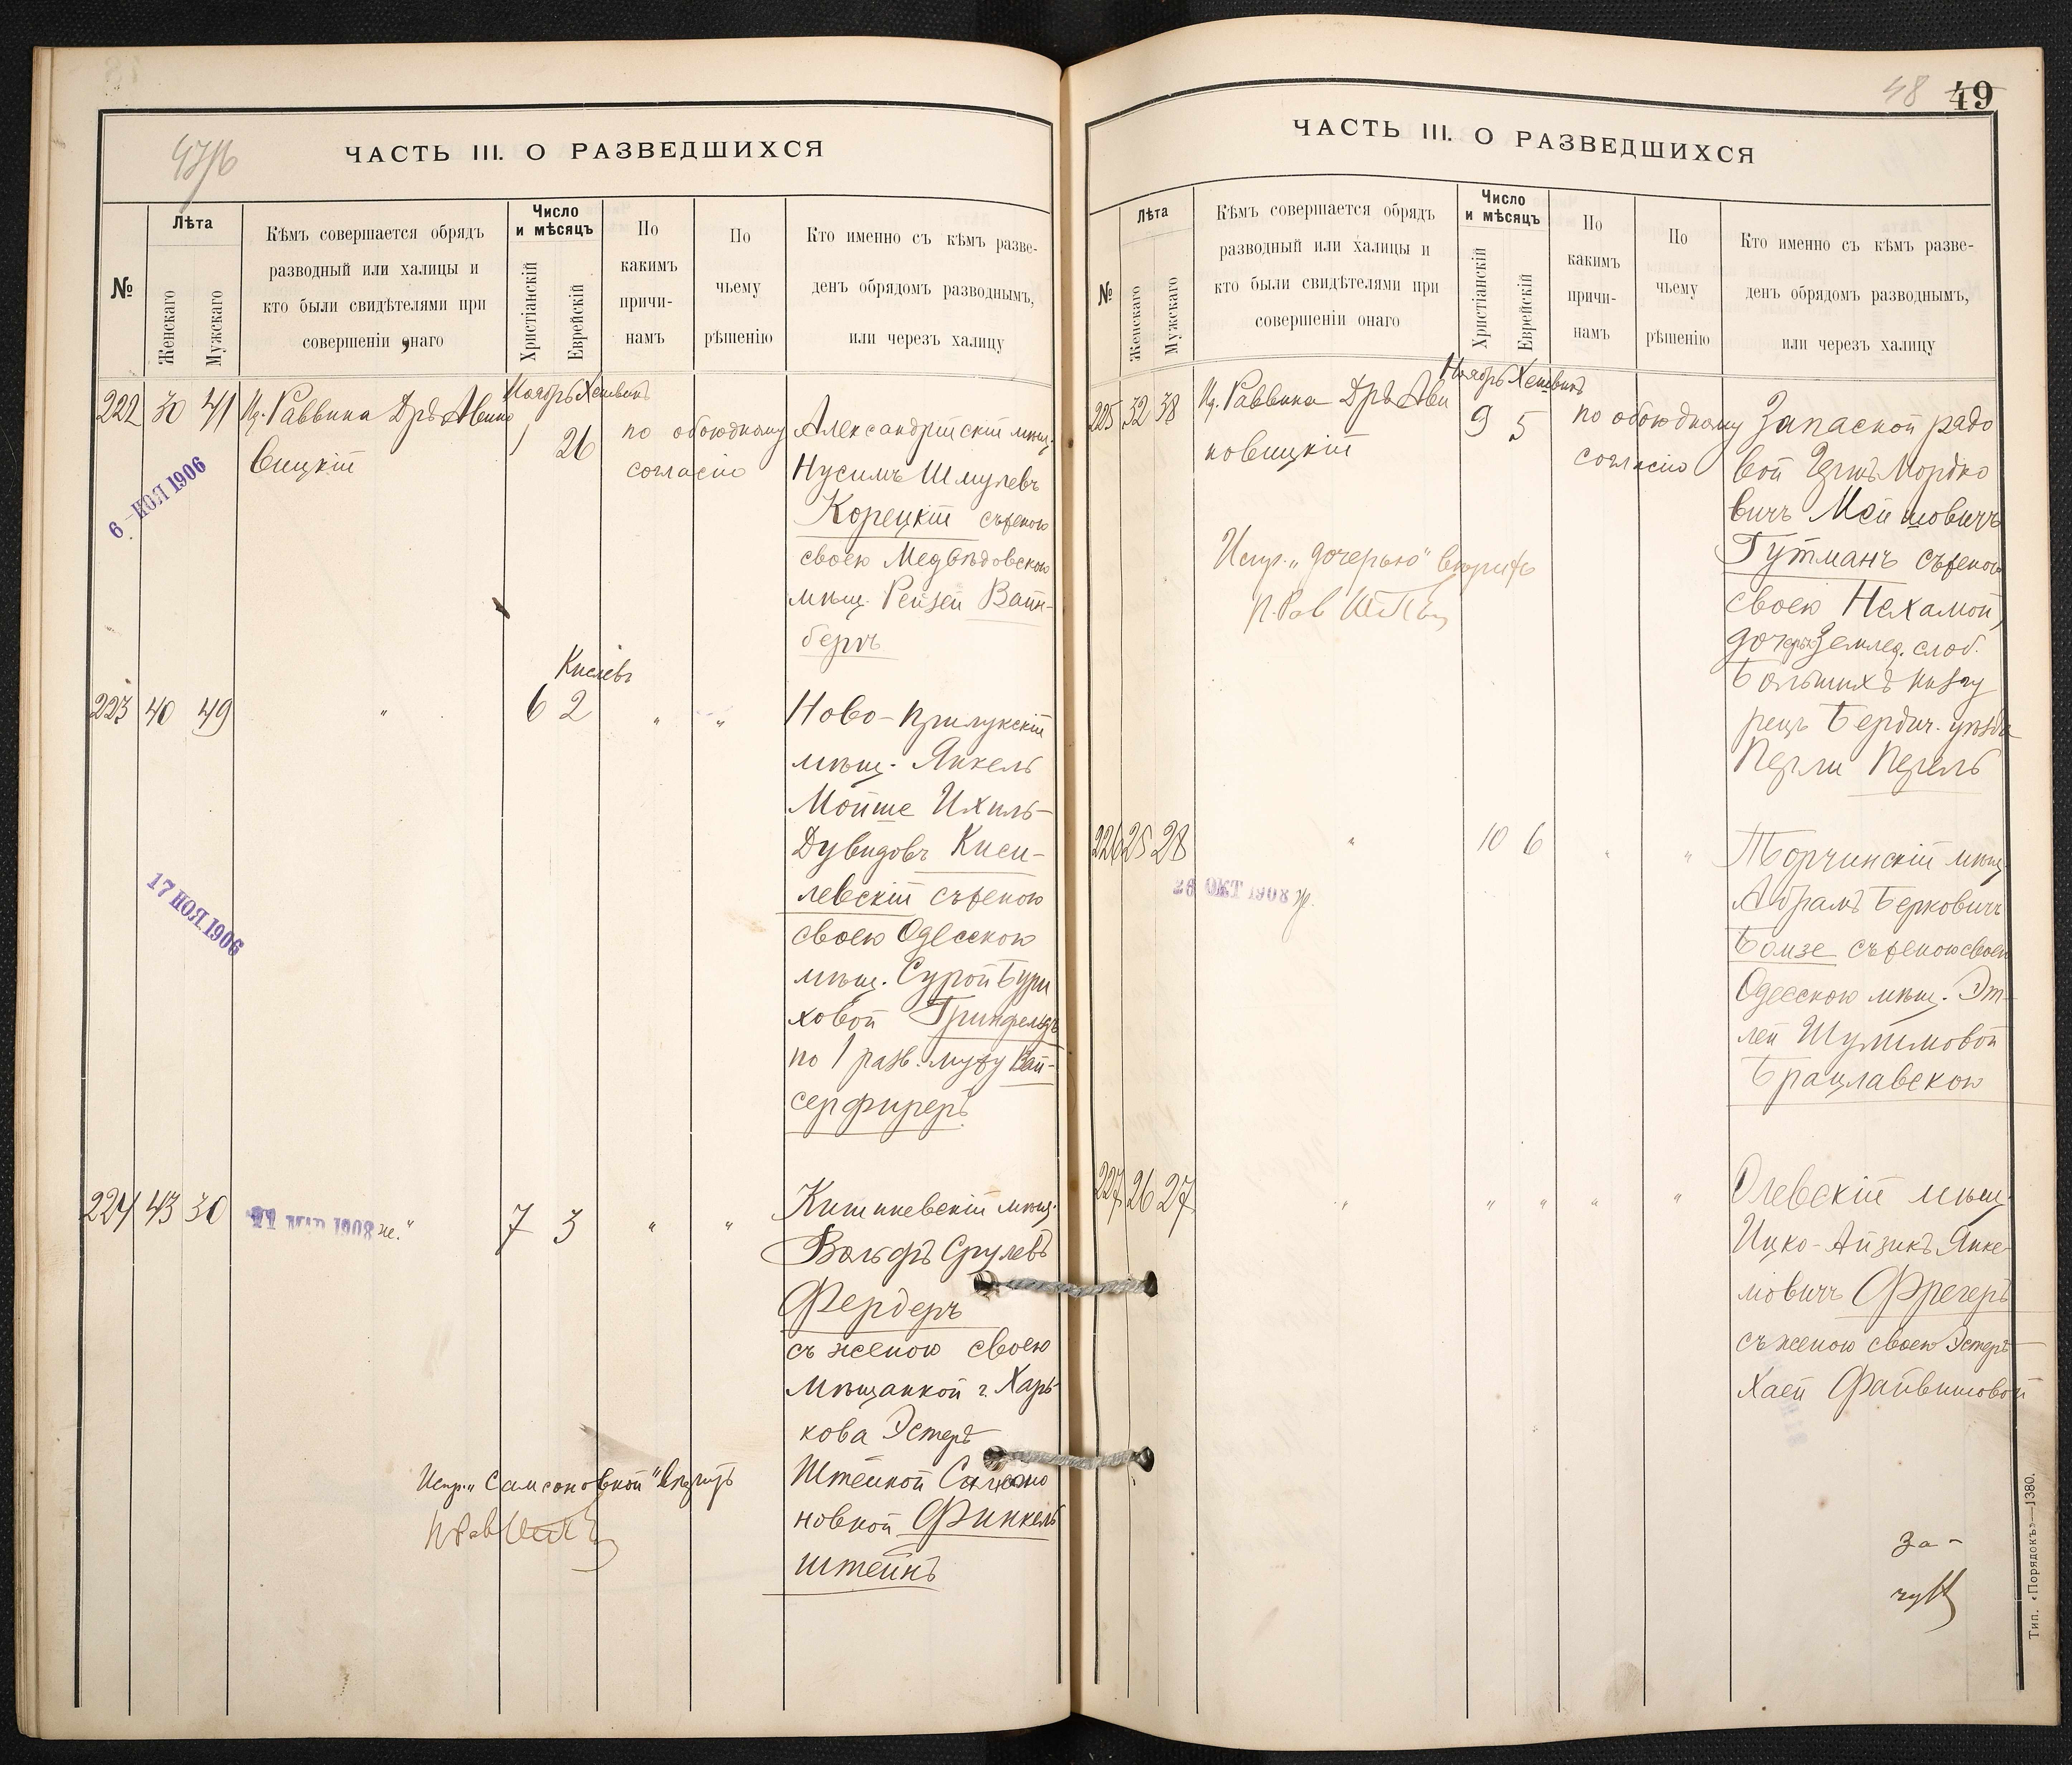 47/16
ЧАСТЬ III. О РАЗВЕДШИХСЯ
№
Лѣта
Женскаго
Мужскаго
Кѣмъ совершается обрядъ
разводный или халицы и
кто были свидѣтелями при
совершеніи онаго
Число
и мѣсяцъ
Христіанскій
Еврейскій
По
какимъ
причи-
намъ
По
чьему
рѣшенію
Кто именно съ кѣмъ разве-
денъ обрядомъ разводнымъ,
или черезъ халицу
222 30 41
Раввина Дръ Авино
вицкій
Ноябрь Хешвинъ
1 26
по обоюдному
согласію
Александрійскій мѣщ.
Нусимъ Шмулевъ
Корецкій съ женою
своею Медвѣдовскою
мѣщ. Рейзей Вайн-
бергъ
6 - НОЯ 1906
223 40 49
"
Кислевъ
6 2
" "
Ново-Прилукскій
мѣщ. Янкель
Мойше Ихиль-
Дувидовъ Киси-
левскій съ женою
своею Одесскою
мѣщ. Сурой Бури
ховой Гринфельдъ
по 1 разв. мужу Вай-
серфиреръ
17 НОЯ 1906
224 43 30
1908 ж. "
7 3
" "
Кишиневскій мѣщ.
Вольфъ Срулевъ
Фердеръ
съ женою своею
мѣщанкой г. Харь-
кова Эстеръ
Штейной Самсо
новной Финкель
штейнъ
Испр. „Самсоновной" вѣрить
48
49
ЧАСТЬ III. О РАЗВЕДШИХСЯ
№
Лѣта
Женскаго
Мужскаго
Кѣмъ совершается обрядъ
разводный или халицы и
кто были свидѣтелями при
совершеніи онаго
Число
и мѣсяцъ
Христіанскій
Еврейскій
По
какимъ
причи-
намъ
По
чьему
рѣшенію
Кто именно съ кѣмъ разве-
денъ обрядомъ разводнымъ,
или черезъ халицу
225 32 38
Раввина Дръ Ави
новицкій
Ноябрь Хешвинъ
9 5
по обоюдному
согласію
Запасной рядо
вой Мордко
вичъ Мойшовичъ
Гутманъ съ женою
своею Нехамой,
дочерью Землед. слоб.
Большихъ
Бердич. уѣзда
Перли Перель
Испр. „дочерью" вѣрить
226 25 28
"
10 6
" "
Торчинскій мѣщ.
Абрамъ Берковичъ
Бомзе съ женою своею
Одесскою мѣщ. Эт-
лей Шулимовой
Брацлавскою
28 ОКТ 1908 ж.
227 26 27
" " " " "
Олевскій мѣщ.
Ицко-Айзикъ Янке-
левичъ Фрегеръ
съ женою своею Эстеръ
Хаей Файвишовой
за-
Тип. «Порядокъ»—1380.